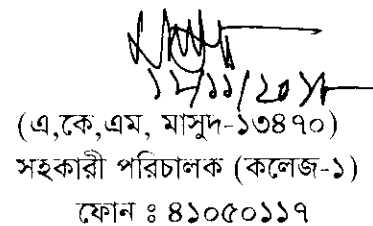 (এ,কে,এম, মাসুদ-১৩৪৭০)
সহকারী পরিচালক (কলেজ-১)
ফোন ঃ ৪১০৫০১১৭